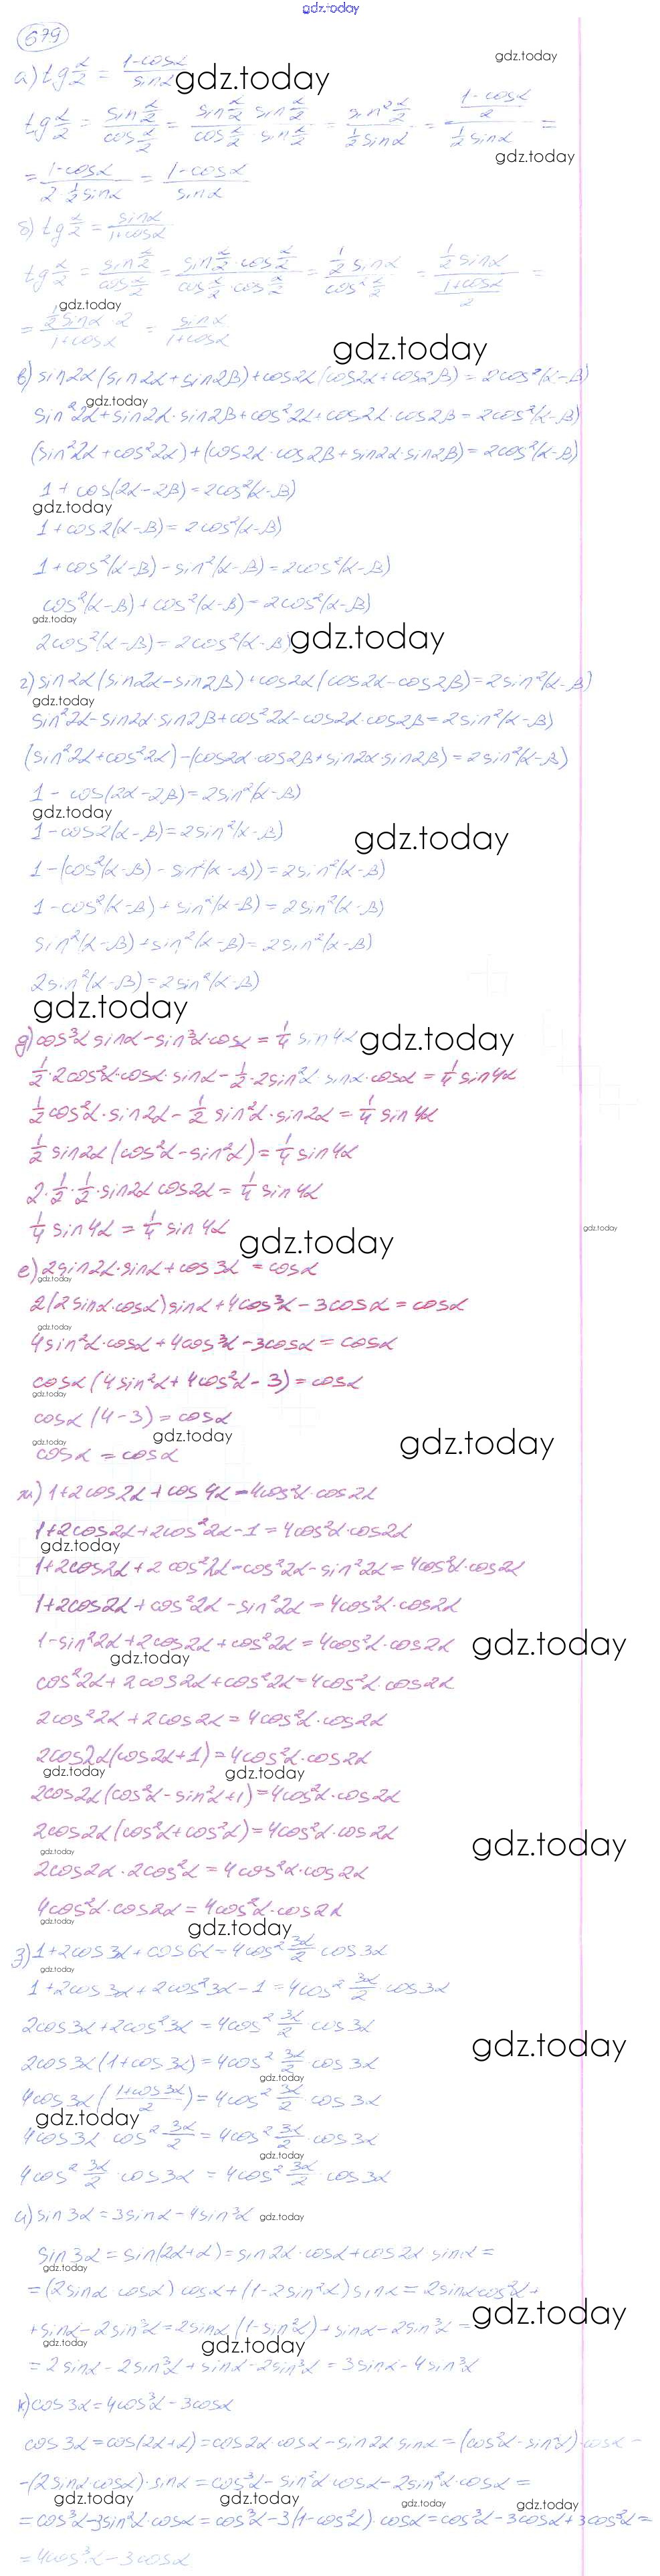 gdz.today
679
а) tg α/2 = (1-cosα)/sinα
tg α/2 = (sin α/2)/(cos α/2) = (sin α/2 sin α/2)/(cos α/2 sin α/2) = (sin² α/2)/(1/2 sinα) = ((1-cosα)/2)/(1/2 sinα) =
= (1-cosα)/(2 1/2 sinα) = (1-cosα)/sinα
б) tg α/2 = sinα/(1+cosα)
tg α/2 = (sin α/2)/(cos α/2) = (sin α/2 · cos α/2)/(cos α/2 · cos α/2) = (1/2 sinα)/(cos² α/2) = (1/2 sinα)/((1+cosα)/2) =
= (1/2 sinα · 2)/(1+cosα) = sinα/(1+cosα)
в) sin2α(sin2α+sin2β)+cos2α(cos2α+cos2β)=2cos²(α-β)
sin²2α+sin2α·sin2β+cos²2α+cos2α·cos2β=2cos²(α-β)
(sin²2α+cos²2α)+(cos2α·cos2β+sin2α·sin2β)=2cos²(α-β)
1+cos(2α-2β)=2cos²(α-β)
1+cos2(α-β)=2cos²(α-β)
1+cos²(α-β)-sin²(α-β)=2cos²(α-β)
cos²(α-β)+cos²(α-β)=2cos²(α-β)
2cos²(α-β)=2cos²(α-β)
г) sin2α(sin2α-sin2β)+cos2α(cos2α-cos2β)=2sin²(α-β)
sin²2α-sin2α·sin2β+cos²2α-cos2α·cos2β=2sin²(α-β)
(sin²2α+cos²2α)-(cos2α·cos2β+sin2α·sin2β)=2sin²(α-β)
1-cos(2α-2β)=2sin²(α-β)
1-cos2(α-β)=2sin²(α-β)
1-(cos²(α-β)-sin²(α-β))=2sin²(α-β)
1-cos²(α-β)+sin²(α-β)=2sin²(α-β)
sin²(α-β)+sin²(α-β)=2sin²(α-β)
2sin²(α-β)=2sin²(α-β)
д) cos³α sinα-sin³α·cosα = 1/4 sin4α
1/2·2cos²α·cosα·sinα-1/2·2sin²α sinα·cosα = 1/4 sin4α
1/2 cos²α·sin2α-1/2 sin²α·sin2α = 1/4 sin4α
1/2 sin2α(cos²α-sin²α) = 1/4 sin4α
2·1/2·1/2·sin2α cos2α = 1/4 sin4α
1/4 sin4α = 1/4 sin4α
е) 2sin2α·sinα+cos3α=cosα
2(2sinα·cosα)sinα+4cos³α-3cosα=cosα
4sin²α·cosα+4cos³α-3cosα=cosα
cosα(4sin²α+4cos²α-3)=cosα
cosα(4-3)=cosα
cosα=cosα
ж) 1+2cos2α+cos4α=4cos²α·cos2α
1+2cos2α+2cos²2α-1=4cos²α·cos2α
1+2cos2α+2cos²2α-cos²2α-sin²2α=4cos²α·cos2α
1+2cos2α+cos²2α-sin²2α=4cos²α·cos2α
1-sin²2α+2cos2α+cos²2α=4cos²α·cos2α
cos²2α+2cos2α+cos²2α=4cos²α·cos2α
2cos²2α+2cos2α=4cos²α·cos2α
2cos2α(cos2α+1)=4cos²α·cos2α
2cos2α(cos²α-sin²α+1)=4cos²α·cos2α
2cos2α(cos²α+cos²α)=4cos²α·cos2α
2cos2α·2cos²α=4cos²α·cos2α
4cos²α·cos2α=4cos²α·cos2α
з) 1+2cos3α+cos6α=4cos² 3α/2 cos3α
1+2cos3α+2cos²3α-1=4cos² 3α/2 cos3α
2cos3α+2cos²3α=4cos² 3α/2 cos3α
2cos3α(1+cos3α)=4cos² 3α/2 cos3α
4cos3α((1+cos3α)/2)=4cos² 3α/2 cos3α
4cos3α cos² 3α/2=4cos² 3α/2·cos3α
4cos² 3α/2·cos3α=4cos² 3α/2·cos3α
и) sin3α=3sinα-4sin³α
sin3α=sin(2α+α)=sin2α·cosα+cos2α·sinα=
=(2sinα cosα)cosα+(1-2sin²α)sinα=2sinαcos²α+
+sinα-2sin³α=2sinα(1-sin²α)+sinα-2sin³α=
=2sinα-2sin³α+sinα-2sin³α=3sinα-4sin³α
к) cos3α=4cos³α-3cosα
cos3α=cos(2α+α)=cos2α·cosα-sin2α sinα=(cos²α-sin²α)·cosα-
-(2sinα cosα)·sinα=cos³α-sin²α cosα-2sin²α·cosα=
=cos³α-3sin²α·cosα=cos³α-3(1-cos²α)·cosα=cos³α-3cosα+3cos³α=
=4cos³α-3cosα